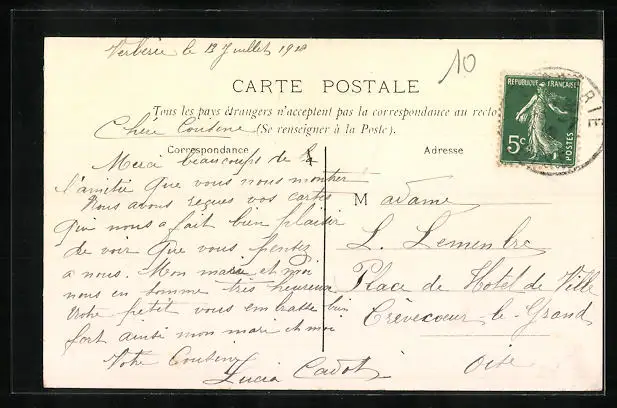 Verberie le 13 Juillet 19
10
CARTE POSTALE
Tous les pays étrangers n'acceptent pas la correspondance au recto
(Se renseigner à la Poste).
RÉPUBLIQUE FRANÇAISE
5c
POSTES
ERIE
Correspondance
Adresse
Chère Cousine
Merci beaucoups de
l'amitié que vous nous montrer
Nous avons reçues vos cartes
qui nous a fait bien plaisir
de voir que vous pensez
a nous. Mon mari et moi
nous en somme très heureux
votre petit vous embrasse bien
fort ainsi mon mari et moi
Votre Cousine
Lucia Cadot
Madame
L. Lemembre
Place de Hotel de Ville
Crèvecœur-le-Grand
Oise